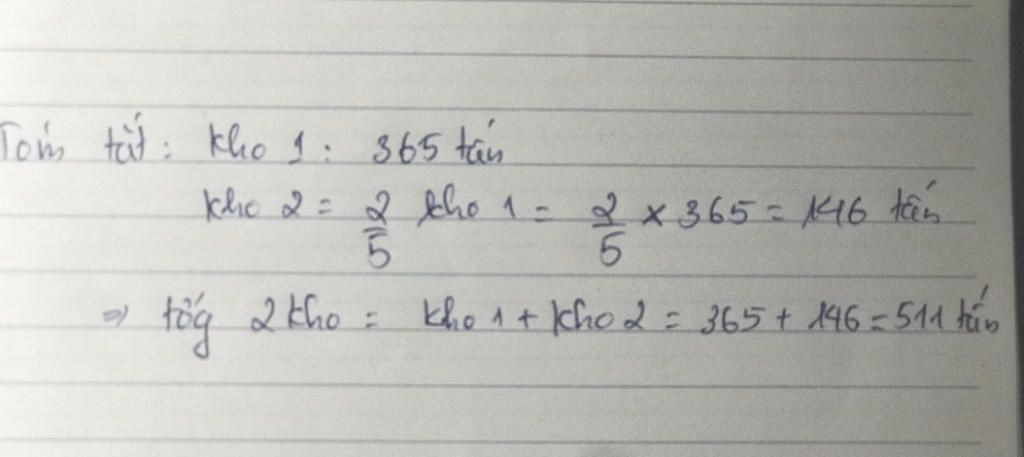 Tóm tắt: kho 1: 365 tấn
kho 2 = 2/5 kho 1 = 2/5 × 365 = 146 tấn
⇒ tổg 2 kho = kho 1 + kho 2 = 365 + 146 = 511 tấn